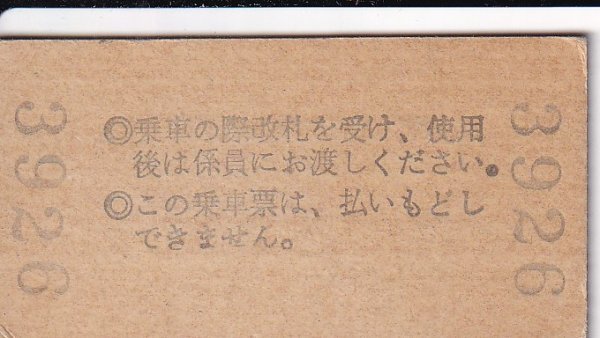 3926
◎乗車の際改札を受け、使用
後は係員にお渡しください。
◎この乗車票は、払いもどし
できません。
3926